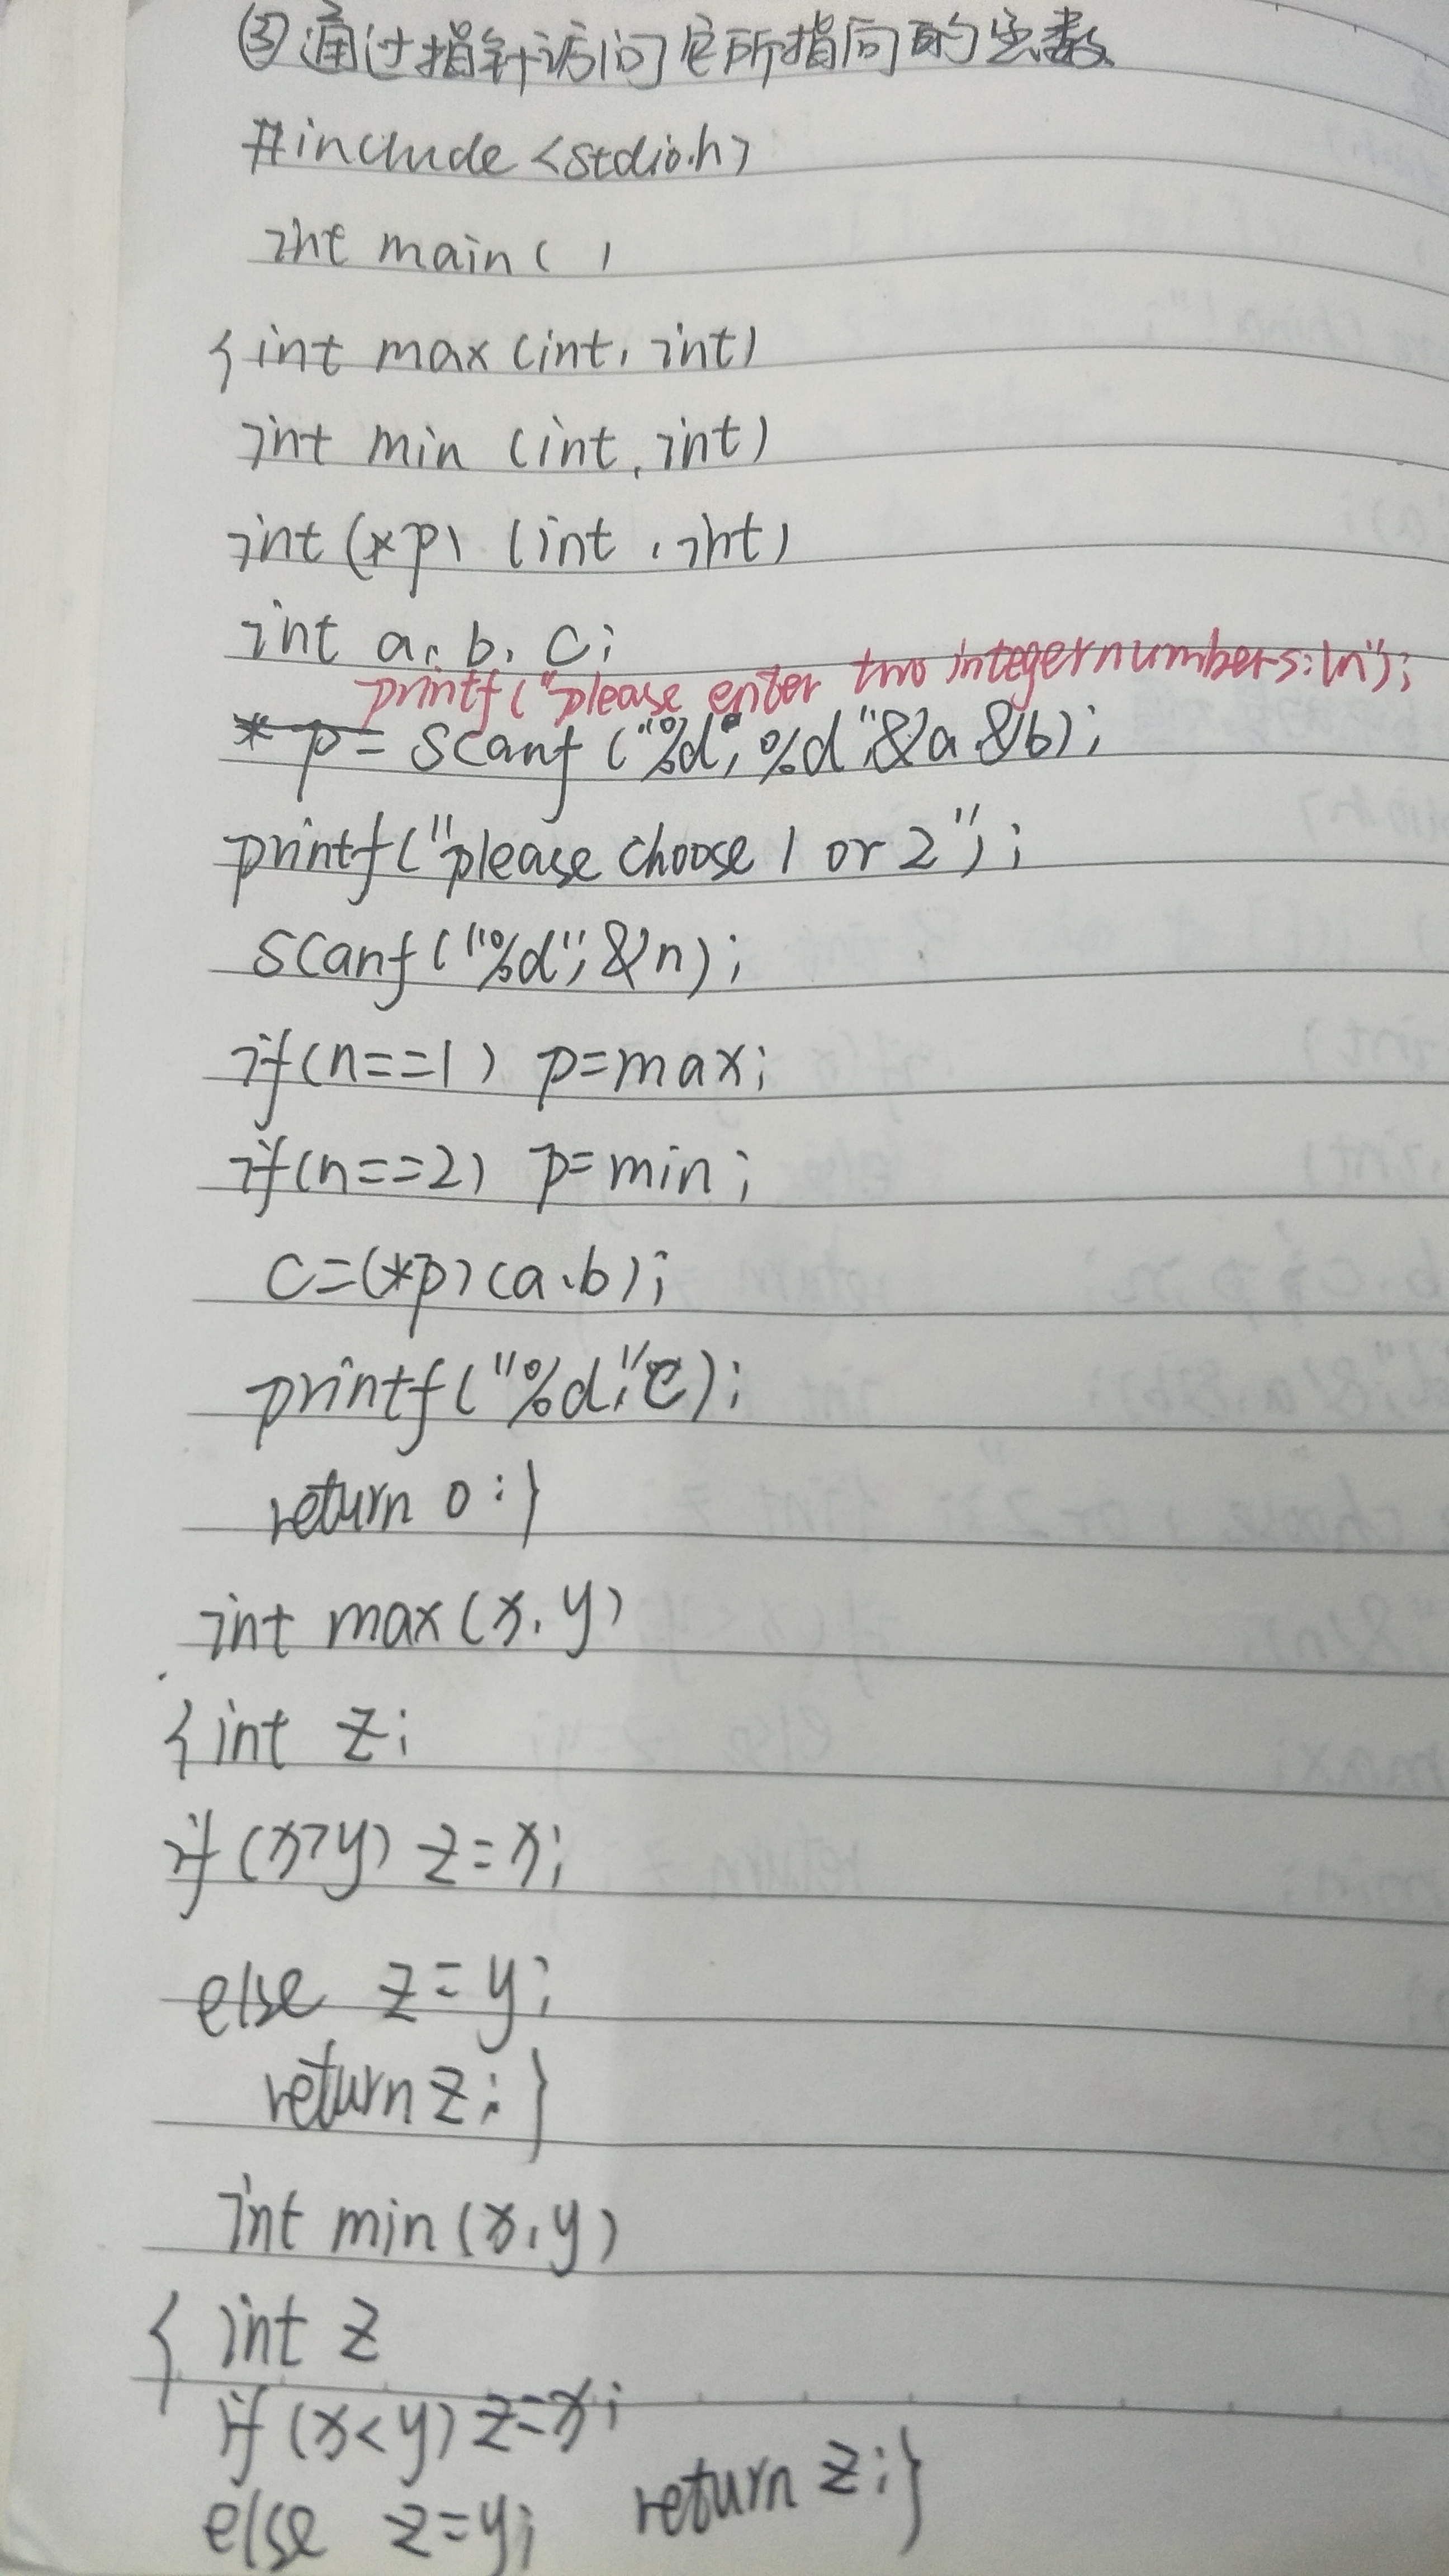 ③通过指针访问它所指向的函数
#include <stdio.h>
int main( )
{int max (int, int)
int min (int, int)
int (*p) (int, int)
int a, b, c;
printf("please enter two integer numbers:\n");
* p = scanf ("%d", %d",&a &b);
printf("please choose 1 or 2");
scanf("%d",&n);
if(n==1) p=max;
if(n==2) p=min;
c=(*p)(a,b);
printf("%d,"c);
return 0;}
int max(x,y)
{int z;
if (x>y) z=x;
else z=y;
return z;}
int min(x,y)
{ int z
if (x<y) z=x;
else z=y; return z;}